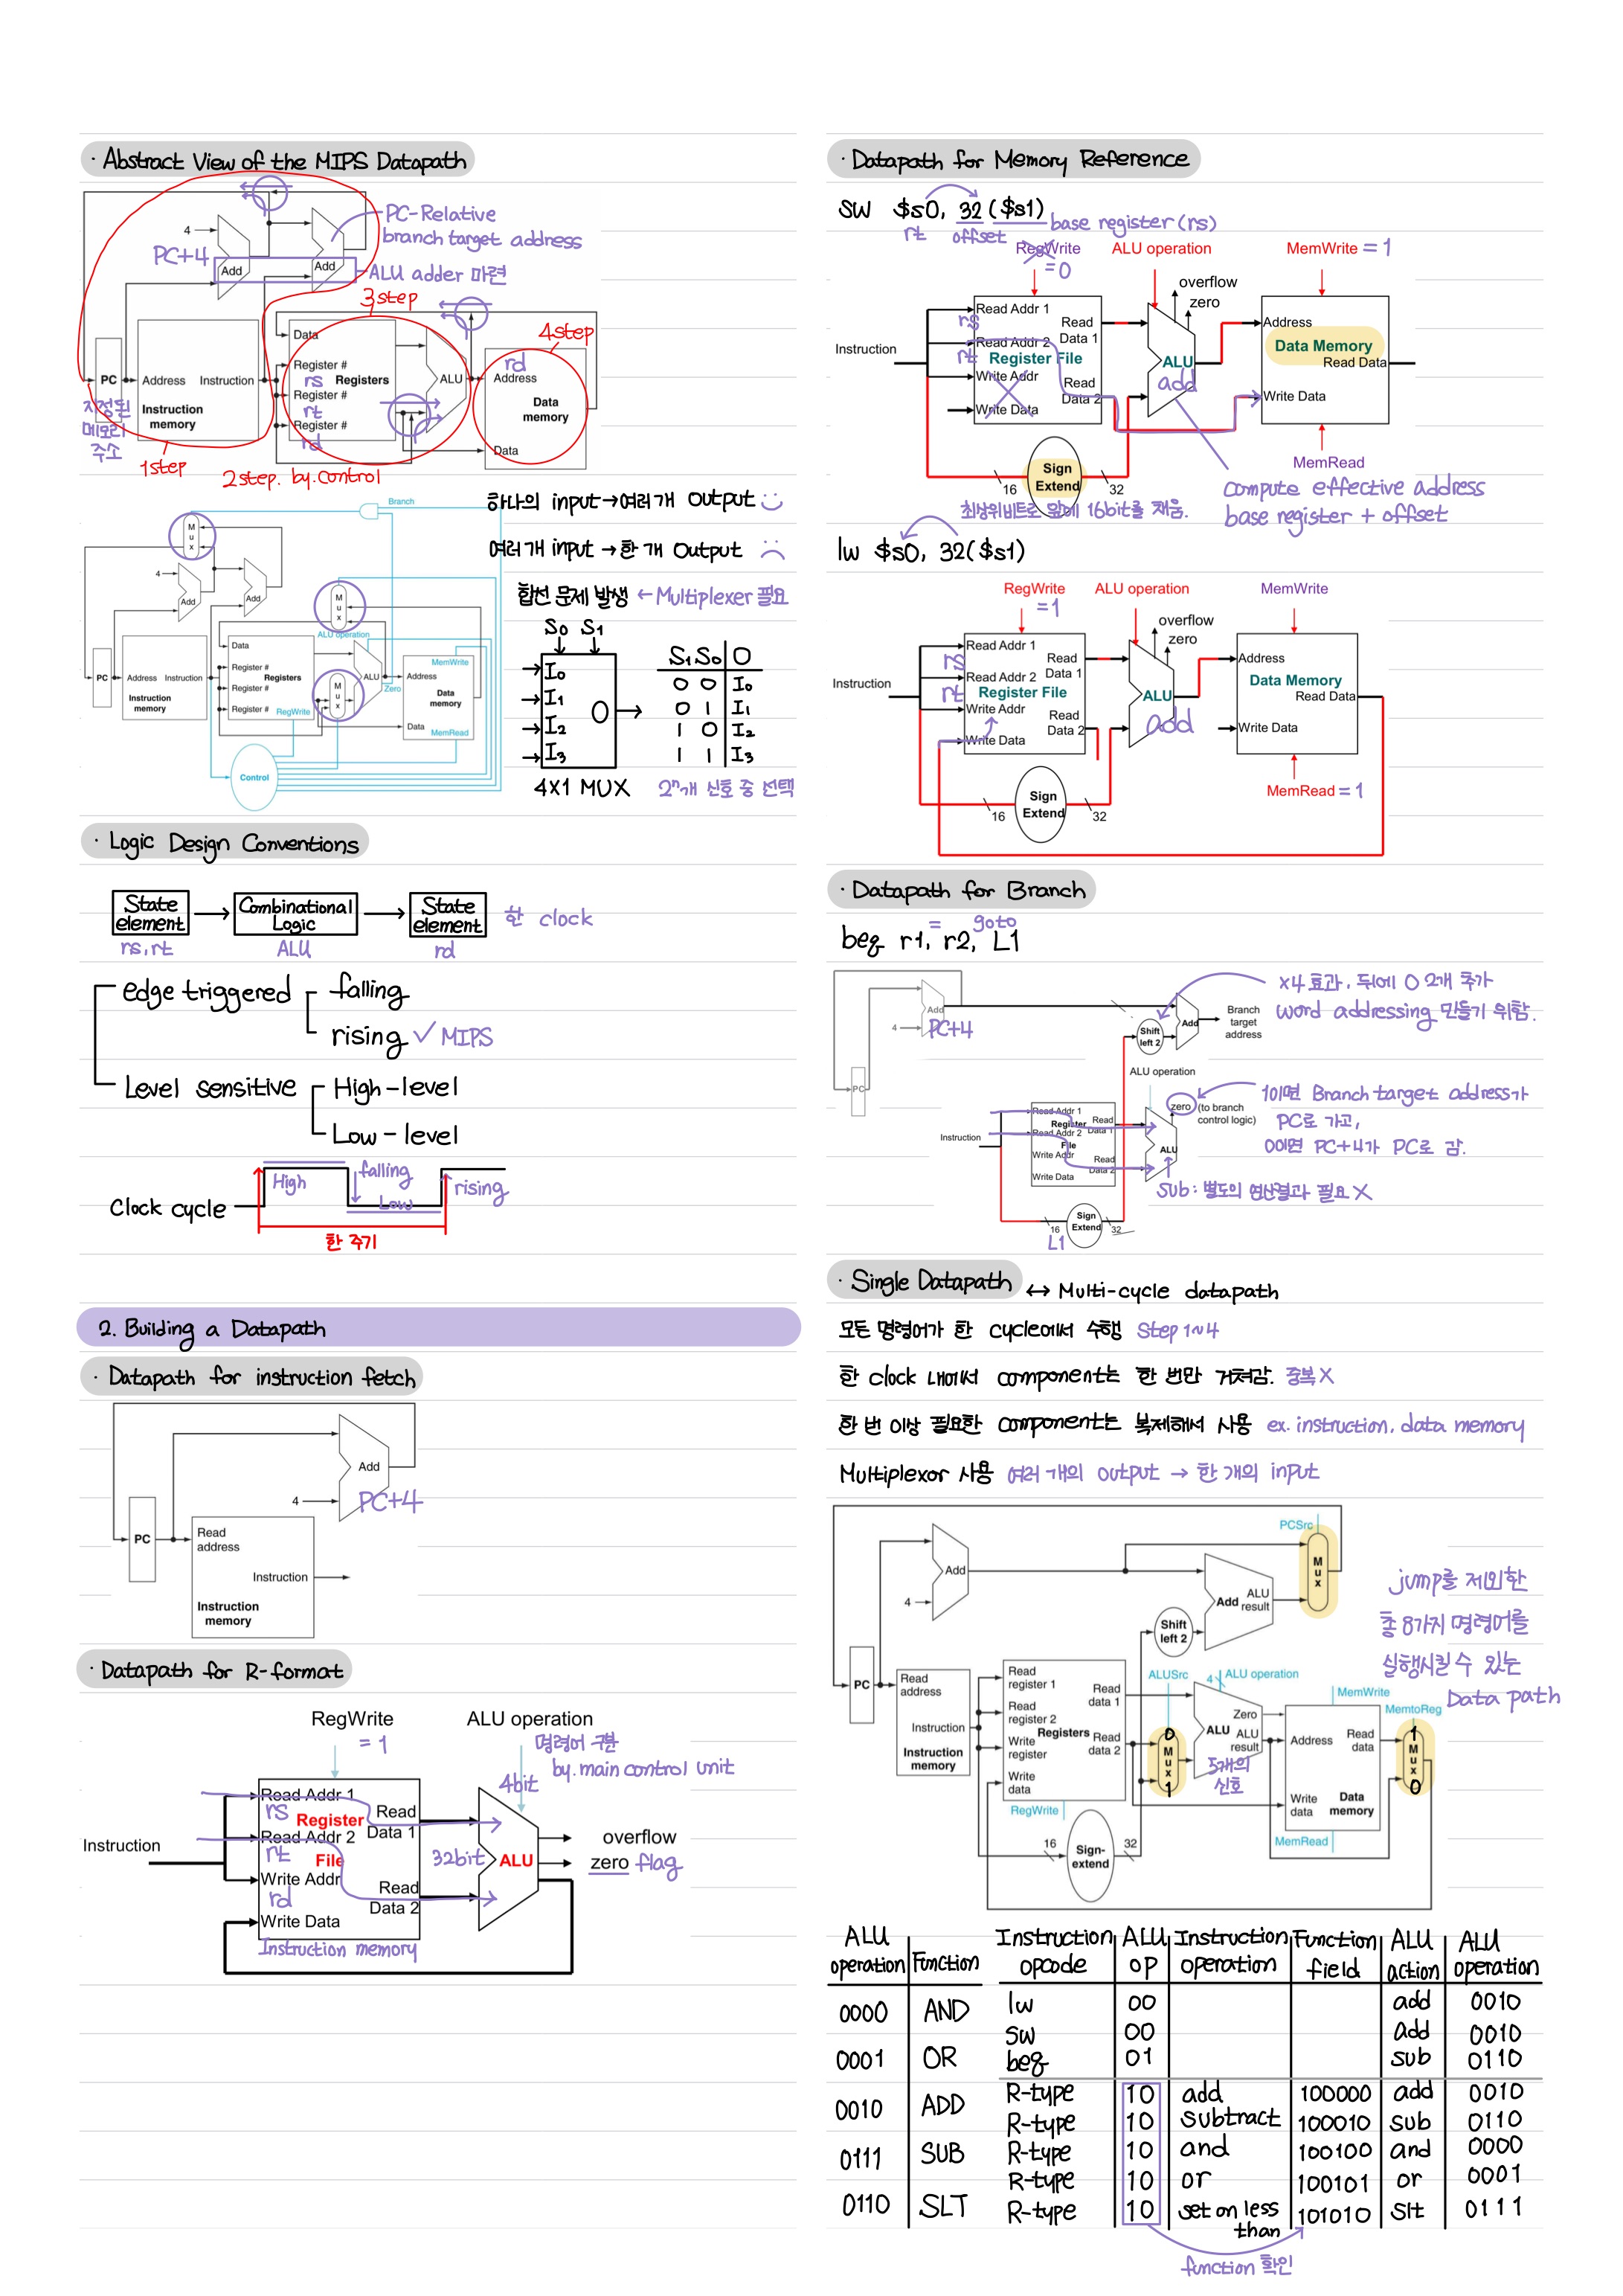 · Abstract View of the MIPS Datapath
4
PC-Relative
branch target address
PC+4
Add
Add
ALU adder 마련
3step
4step
Data
Register #
rs
Registers
Register #
rt
Register #
rd
ALU
rd
Address
Data
memory
Data
PC
Address
Instruction
Instruction
memory
지정된
메모리
주소
1step
2step. by.control
Branch
Mux
4
Add
Add
Mux
ALU operation
Data
Register #
Registers
Register #
Register #
RegWrite
Mux
ALU
Zero
MemWrite
Address
Data
memory
Data
MemRead
PC
Address
Instruction
Instruction
memory
Control
하나의 input→여러개 output
여러개 input → 한개 Output
합선 문제 발생 ← Multiplexer 필요
S0 S1
I0
I1
I2
I3
O
4X1 MUX
S1 S0 O
0 0 I0
0 1 I1
1 0 I2
1 1 I3
2ⁿ개 신호 중 선택
· Logic Design Conventions
State
element
Combinational
Logic
State
element
한 clock
rs, rt
ALU
rd
edge triggered
falling
rising ✓ MIPS
Level sensitive
High-level
Low-level
Clock cycle
High
falling
Low
rising
한 주기
2. Building a Datapath
· Datapath for instruction fetch
Add
4
PC+4
PC
Read
address
Instruction
Instruction
memory
· Datapath for R-format
RegWrite
= 1
ALU operation
명령어 구분
by.main control unit
4bit
Instruction
Read Addr 1
rs
Register
Read Addr 2
rt
File
Write Addr
rd
Write Data
Read
Data 1
Read
Data 2
32bit
ALU
overflow
zero flag
Instruction memory
· Datapath for Memory Reference
SW $s0, 32 ($s1)
rt offset base register (rs)
RegWrite
= 0
ALU operation
MemWrite = 1
overflow
zero
Instruction
Read Addr 1
rs
Read Addr 2
rt
Register File
Write Addr
Write Data
Read
Data 1
Read
Data 2
ALU
add
Address
Data Memory
Read Data
Write Data
MemRead
Sign
Extend
16
32
최상위비트로 앞에 16bit를 채움.
compute effective address
base register + offset
lw $s0, 32($s1)
RegWrite
= 1
ALU operation
MemWrite
overflow
zero
Instruction
Read Addr 1
rs
Read Addr 2
rt
Register File
Write Addr
Write Data
Read
Data 1
Read
Data 2
ALU
add
Address
Data Memory
Read Data
Write Data
MemRead = 1
Sign
Extend
16
32
· Datapath for Branch
= goto
beq r1, r2, L1
Add
4
PC+4
PC
Shift
left 2
Add
Branch
target
address
x4 효과, 뒤에 0 2개 추가
word addressing 만들기 위함.
ALU operation
zero (to branch
control logic)
1이면 Branch target address가
PC로 가고,
0이면 PC+4가 PC로 감.
Instruction
Read Addr 1
Register
Read Addr 2
File
Write Addr
Write Data
Read
Data 1
Read
Data 2
ALU
sub: 별도의 연산결과 필요 X
16
L1
Sign
Extend
32
· Single Datapath ↔ Multi-cycle datapath
모든 명령어가 한 cycle에서 수행 Step 1~4
한 clock 내에서 component는 한 번만 거쳐감. 중복 X
한 번 이상 필요한 component는 복제해서 사용 ex. instruction, data memory
Multiplexor 사용 여러 개의 output → 한 개의 input
PCSrc
Mux
Add
4
Add
ALU
result
Shift
left 2
jump를 제외한
총 8가지 명령어를
실행시킬 수 있는
Data path
PC
Read
address
Instruction
Instruction
memory
Read
register 1
Read
register 2
Registers
Write
register
Write
data
Read
data 1
Read
data 2
RegWrite
ALUSrc
0
Mux
1
4
ALU operation
Zero
ALU
ALU
result
5개의
신호
MemWrite
Address
Read
data
Write
data
Data
memory
MemRead
MemtoReg
1
Mux
0
16
Sign-
extend
32
ALU operation Function
0000 AND
0001 OR
0010 ADD
0111 SUB
0110 SLT
Instruction opcode ALU OP Instruction operation Function field ALU action ALU operation
lw 00 add 0010
sw 00 add 0010
beq 01 sub 0110
R-type 10 add 100000 add 0010
R-type 10 subtract 100010 sub 0110
R-type 10 and 100100 and 0000
R-type 10 or 100101 or 0001
R-type 10 set on less than 101010 slt 0111
function 확인